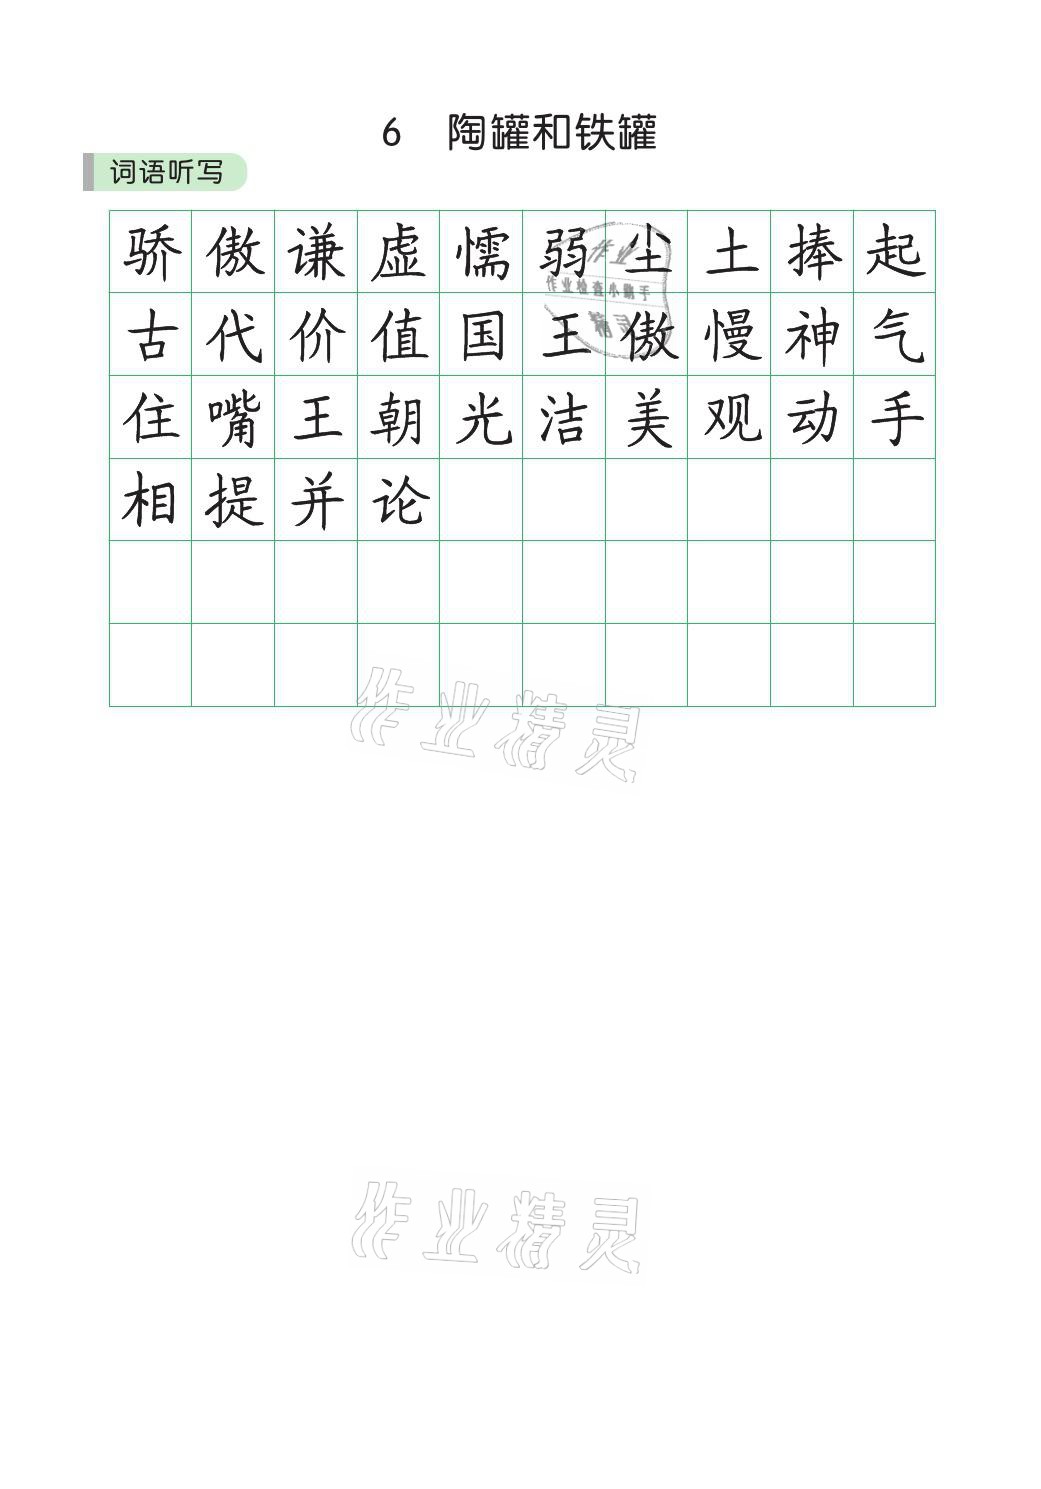 6 陶罐和铁罐
词语听写
骄傲谦虚懦弱尘土捧起
古代价值国王傲慢神气
住嘴王朝光洁美观动手
相提并论
作业
作业检查小助手
精灵
作业精灵
作业精灵